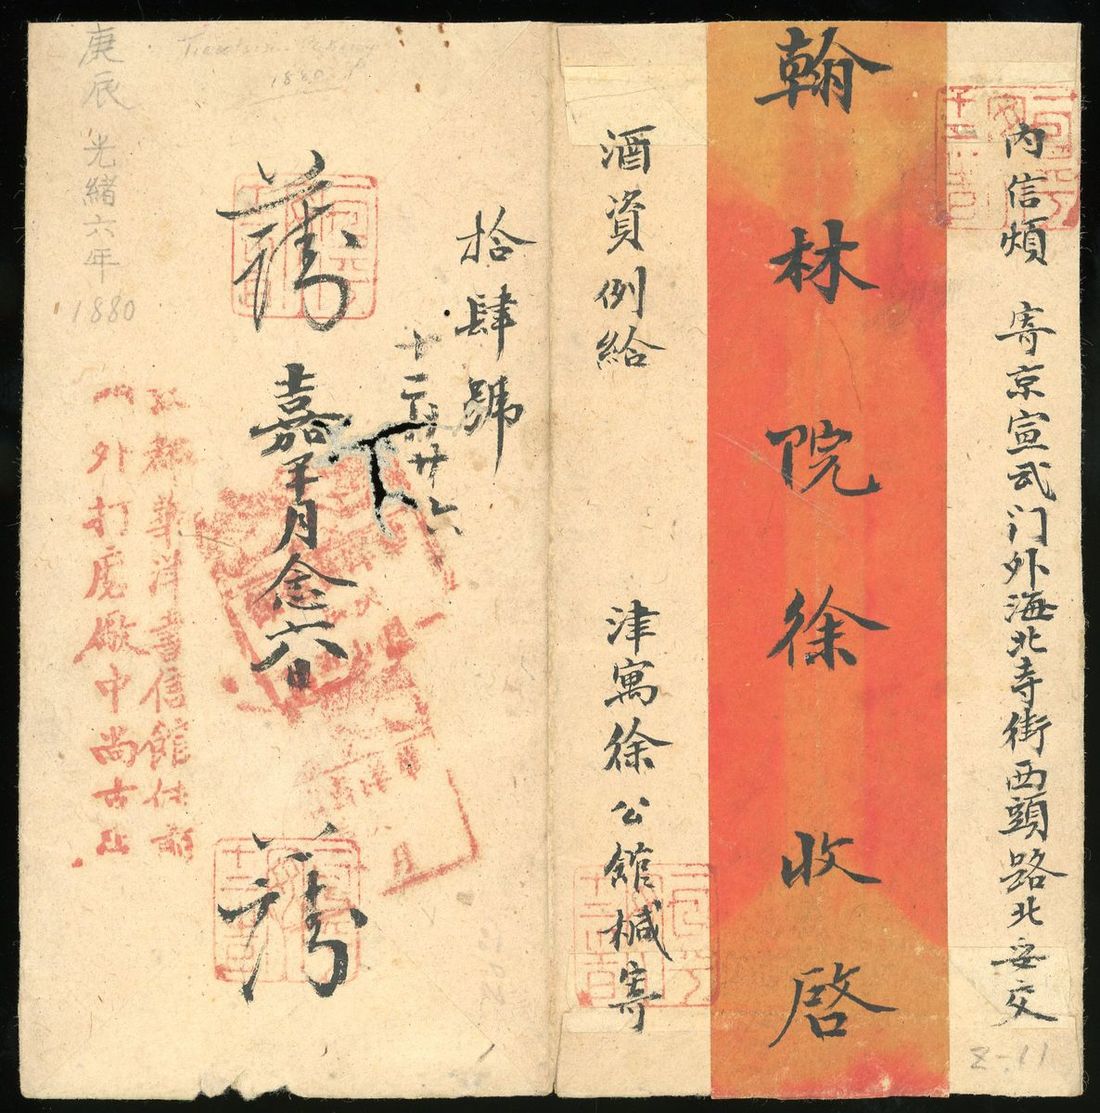 內信煩 寄京宣武门外海北寺街西頭路北妥交
翰林院徐收啓
酒資例給 津寓徐公館械寄
拾肆號
十二月廿六
護 嘉平月念六日 護
都華洋書信館住前
外打磨廠中尚古
庚辰 光緒六年
1880
Tientsin - Peking
1880
Z-11